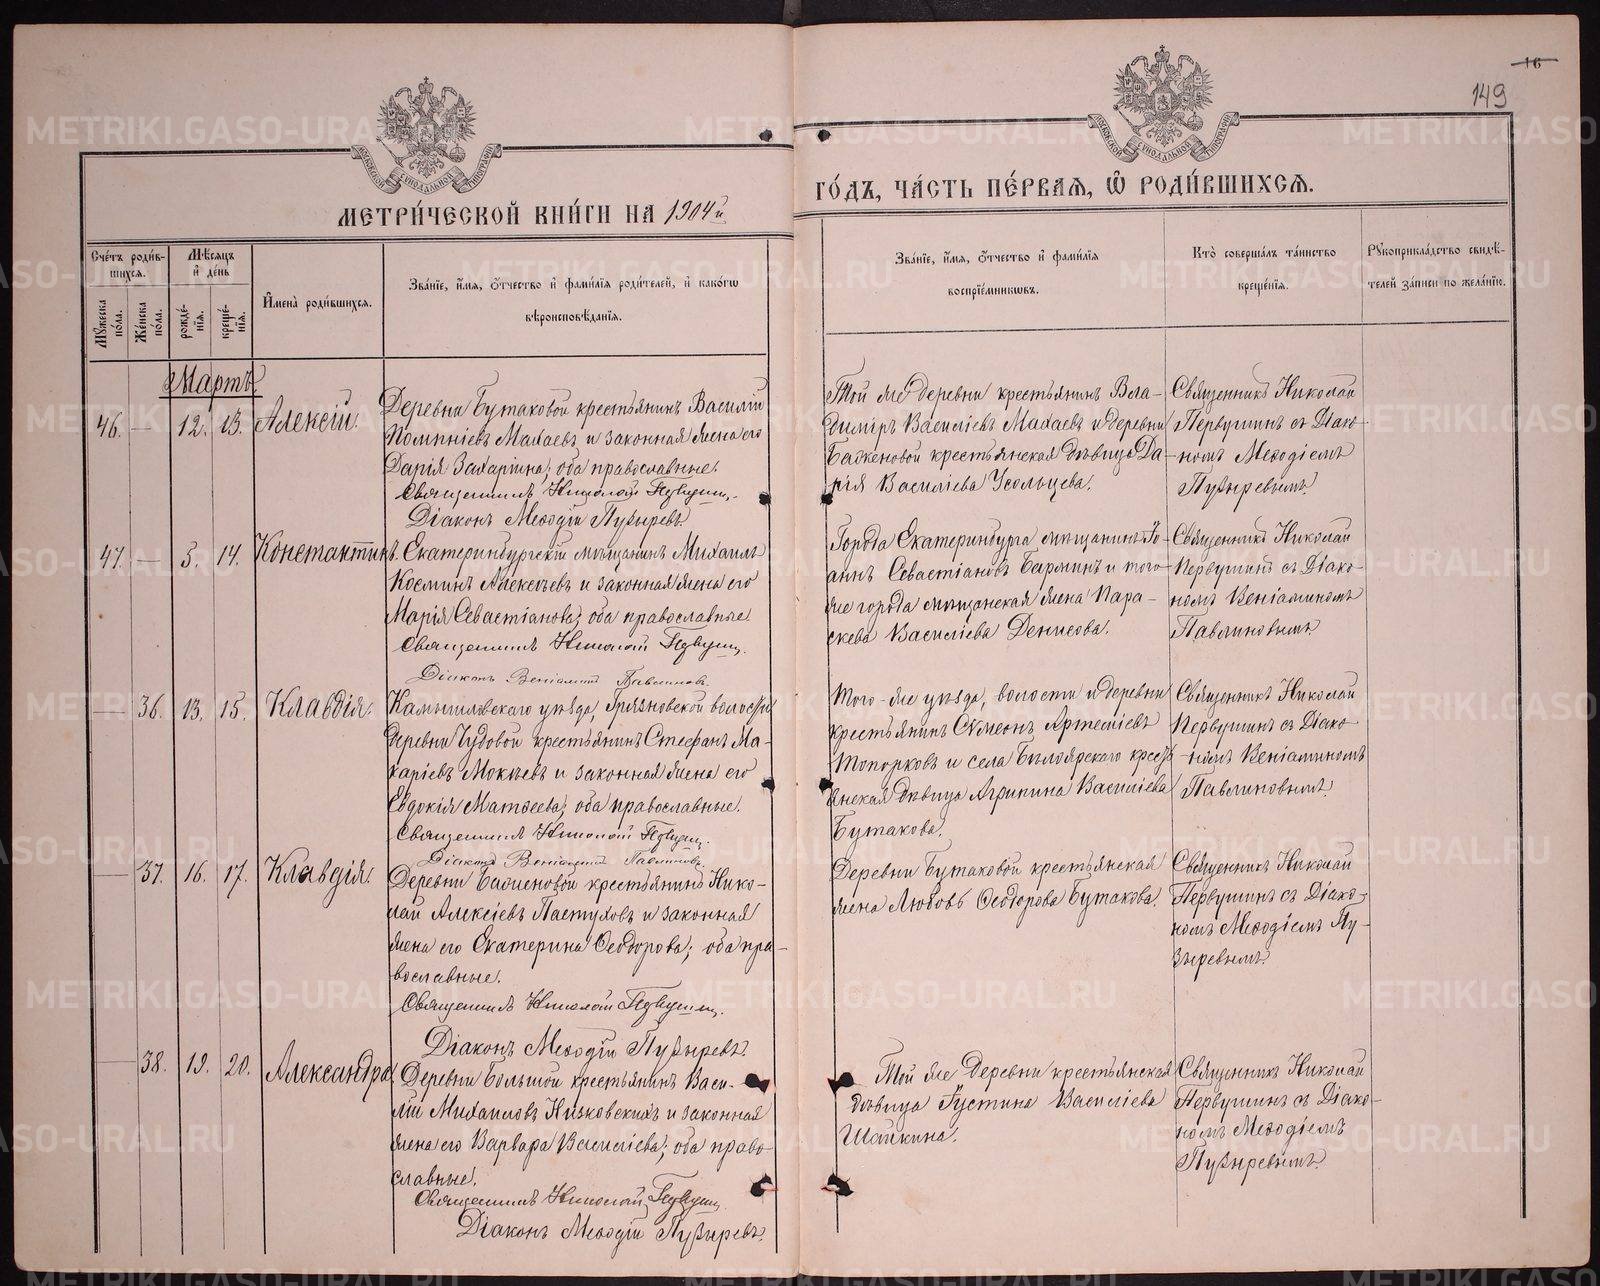 16
149
МОСКОВСКОЙ СѴНОДАЛЬНОЙ ТИПОГРАФІИ
МЕТРИ́ЧЕСКОЙ КНИ́ГИ НА 1904й
ГО́ДЪ, ЧА́СТЬ ПЕ́РВАЯ, Ѡ РОДИ́ВШИХСЯ.
Сче́тъ роди́вшихся.
Мꙋжеска по́ла.
Же́нска по́ла.
Мѣ́сяцъ и҆ де́нь
рожде́нїя.
креще́нїя.
И҆мена̀ роди́вшихся.
Зва́нїе, и҆́мя, ѻ҆́тчество и҆ фами́лїя роди́телей, и҆ како́гѡ
вѣроисповѣ́данїя.
Зва́нїе, и҆́мя, ѻ҆́тчество и҆ фами́лїя
воспрїе́мникѡвъ.
Кто̀ соверша́лъ та́инство
креще́нїя.
Рꙋкоприкла́дство свидѣ́-
телей за́писи по жела́нїю.
Мартъ.
46. — 12. 13. Алексій.
Деревни Бутаковой крестьянинъ Василій
Махаевъ и законная жена его
Дарія Захаріина; оба православные.
Священникъ Николай Первушин.
Діаконъ Меѳодій Пузыревъ.
Той же деревни крестьянинъ Вла-
димиръ Василіевъ Махаевъ и деревни
Баженовой крестьянская дѣвица Да-
рія Василіева Усольцева.
Священникъ Николай
Первушинъ съ Діако-
номъ Меѳодіемъ
Пузыревымъ.
47. — 3. 14. Константинъ.
Екатеринбургскій мѣщанинъ Михаилъ
Косминъ Алексѣевъ и законная жена его
Марія Севастіанова; оба православные.
Священникъ Николай Первушин.
Діаконъ Веніаминъ Павлиновъ.
Города Екатеринбурга мѣщанинъ Іо-
аннъ Севастіановъ Барминъ и того-
же города мѣщанская жена Пара-
скева Василіева Денисова.
Священникъ Николай
Первушинъ съ Діако-
номъ Веніаминомъ
Павлиновымъ.
— 36. 13. 15. Клавдія.
Камышловскаго уѣзда, Грязновской волости
деревни Чудовой крестьянинъ Стефанъ Ма-
каріевъ Мокѣевъ и законная жена его
Евдокія Матѳеева; оба православные.
Священникъ Николай Первушин.
Діаконъ Веніаминъ Павлиновъ.
Того-же уѣзда, волости и деревни
крестьянинъ Сѵмеонъ Артеміевъ
Топорковъ и села Бѣлоярскаго кресть-
янская дѣвица Агрипина Василіева
Бутакова.
Священникъ Николай
Первушинъ съ Діако-
номъ Веніаминомъ
Павлиновымъ.
— 37. 16. 17. Клавдія.
Деревни Баженовой крестьянинъ Нико-
лай Алексіевъ Пастуховъ и законная
жена его Екатерина Ѳеодорова; оба пра-
вославные.
Священникъ Николай Первушин.
Діаконъ Меѳодій Пузыревъ.
Деревни Бутаковой крестьянская
жена Любовь Ѳеодорова Бутакова.
Священникъ Николай
Первушинъ съ Діако-
номъ Меѳодіемъ Пу-
зыревымъ.
— 38. 19. 20. Александра.
Деревни Большой крестьянинъ Васи-
лій Михаиловъ Низковскихъ и законная
жена его Варвара Василіева; оба право-
славные.
Священникъ Николай Первушин.
Діаконъ Меѳодій Пузыревъ.
Той же деревни крестьянская
дѣвица Іустина Василіева
Шайкина.
Священникъ Николай
Первушинъ съ Діако-
номъ Меѳодіемъ
Пузыревымъ.
METRIKI.GASO-URAL.RU